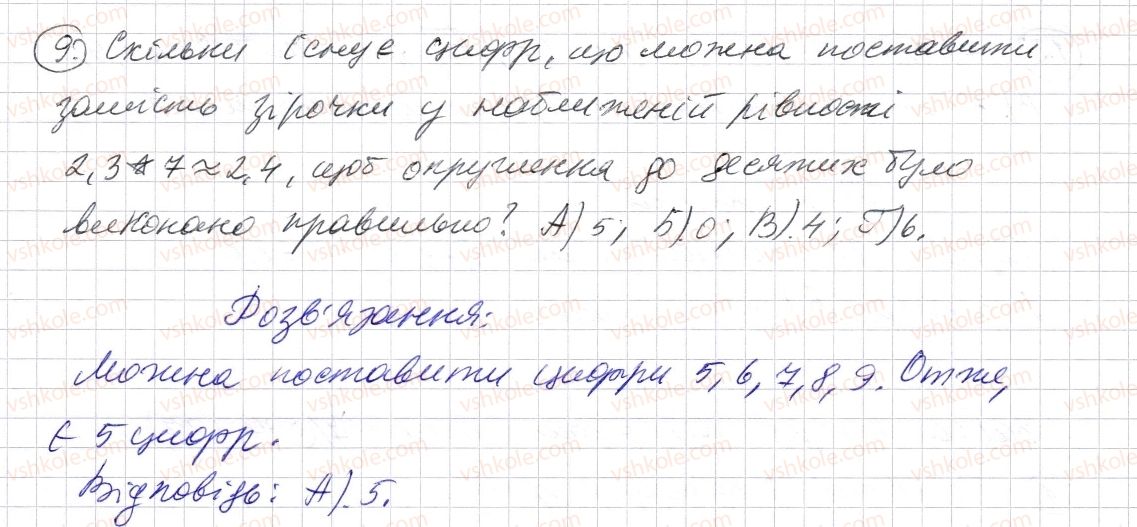 9. Скільки існує цифр, що можна поставити
замість зірочки у наближеній рівності
2,3*7≈2,4, щоб округлення до десятих було
виконано правильно? А) 5; Б). 0; В). 4; Г) 6.
Розв'язання:
Можна поставити цифри 5, 6, 7, 8, 9. Отже,
є 5 цифр.
Відповідь: А). 5.